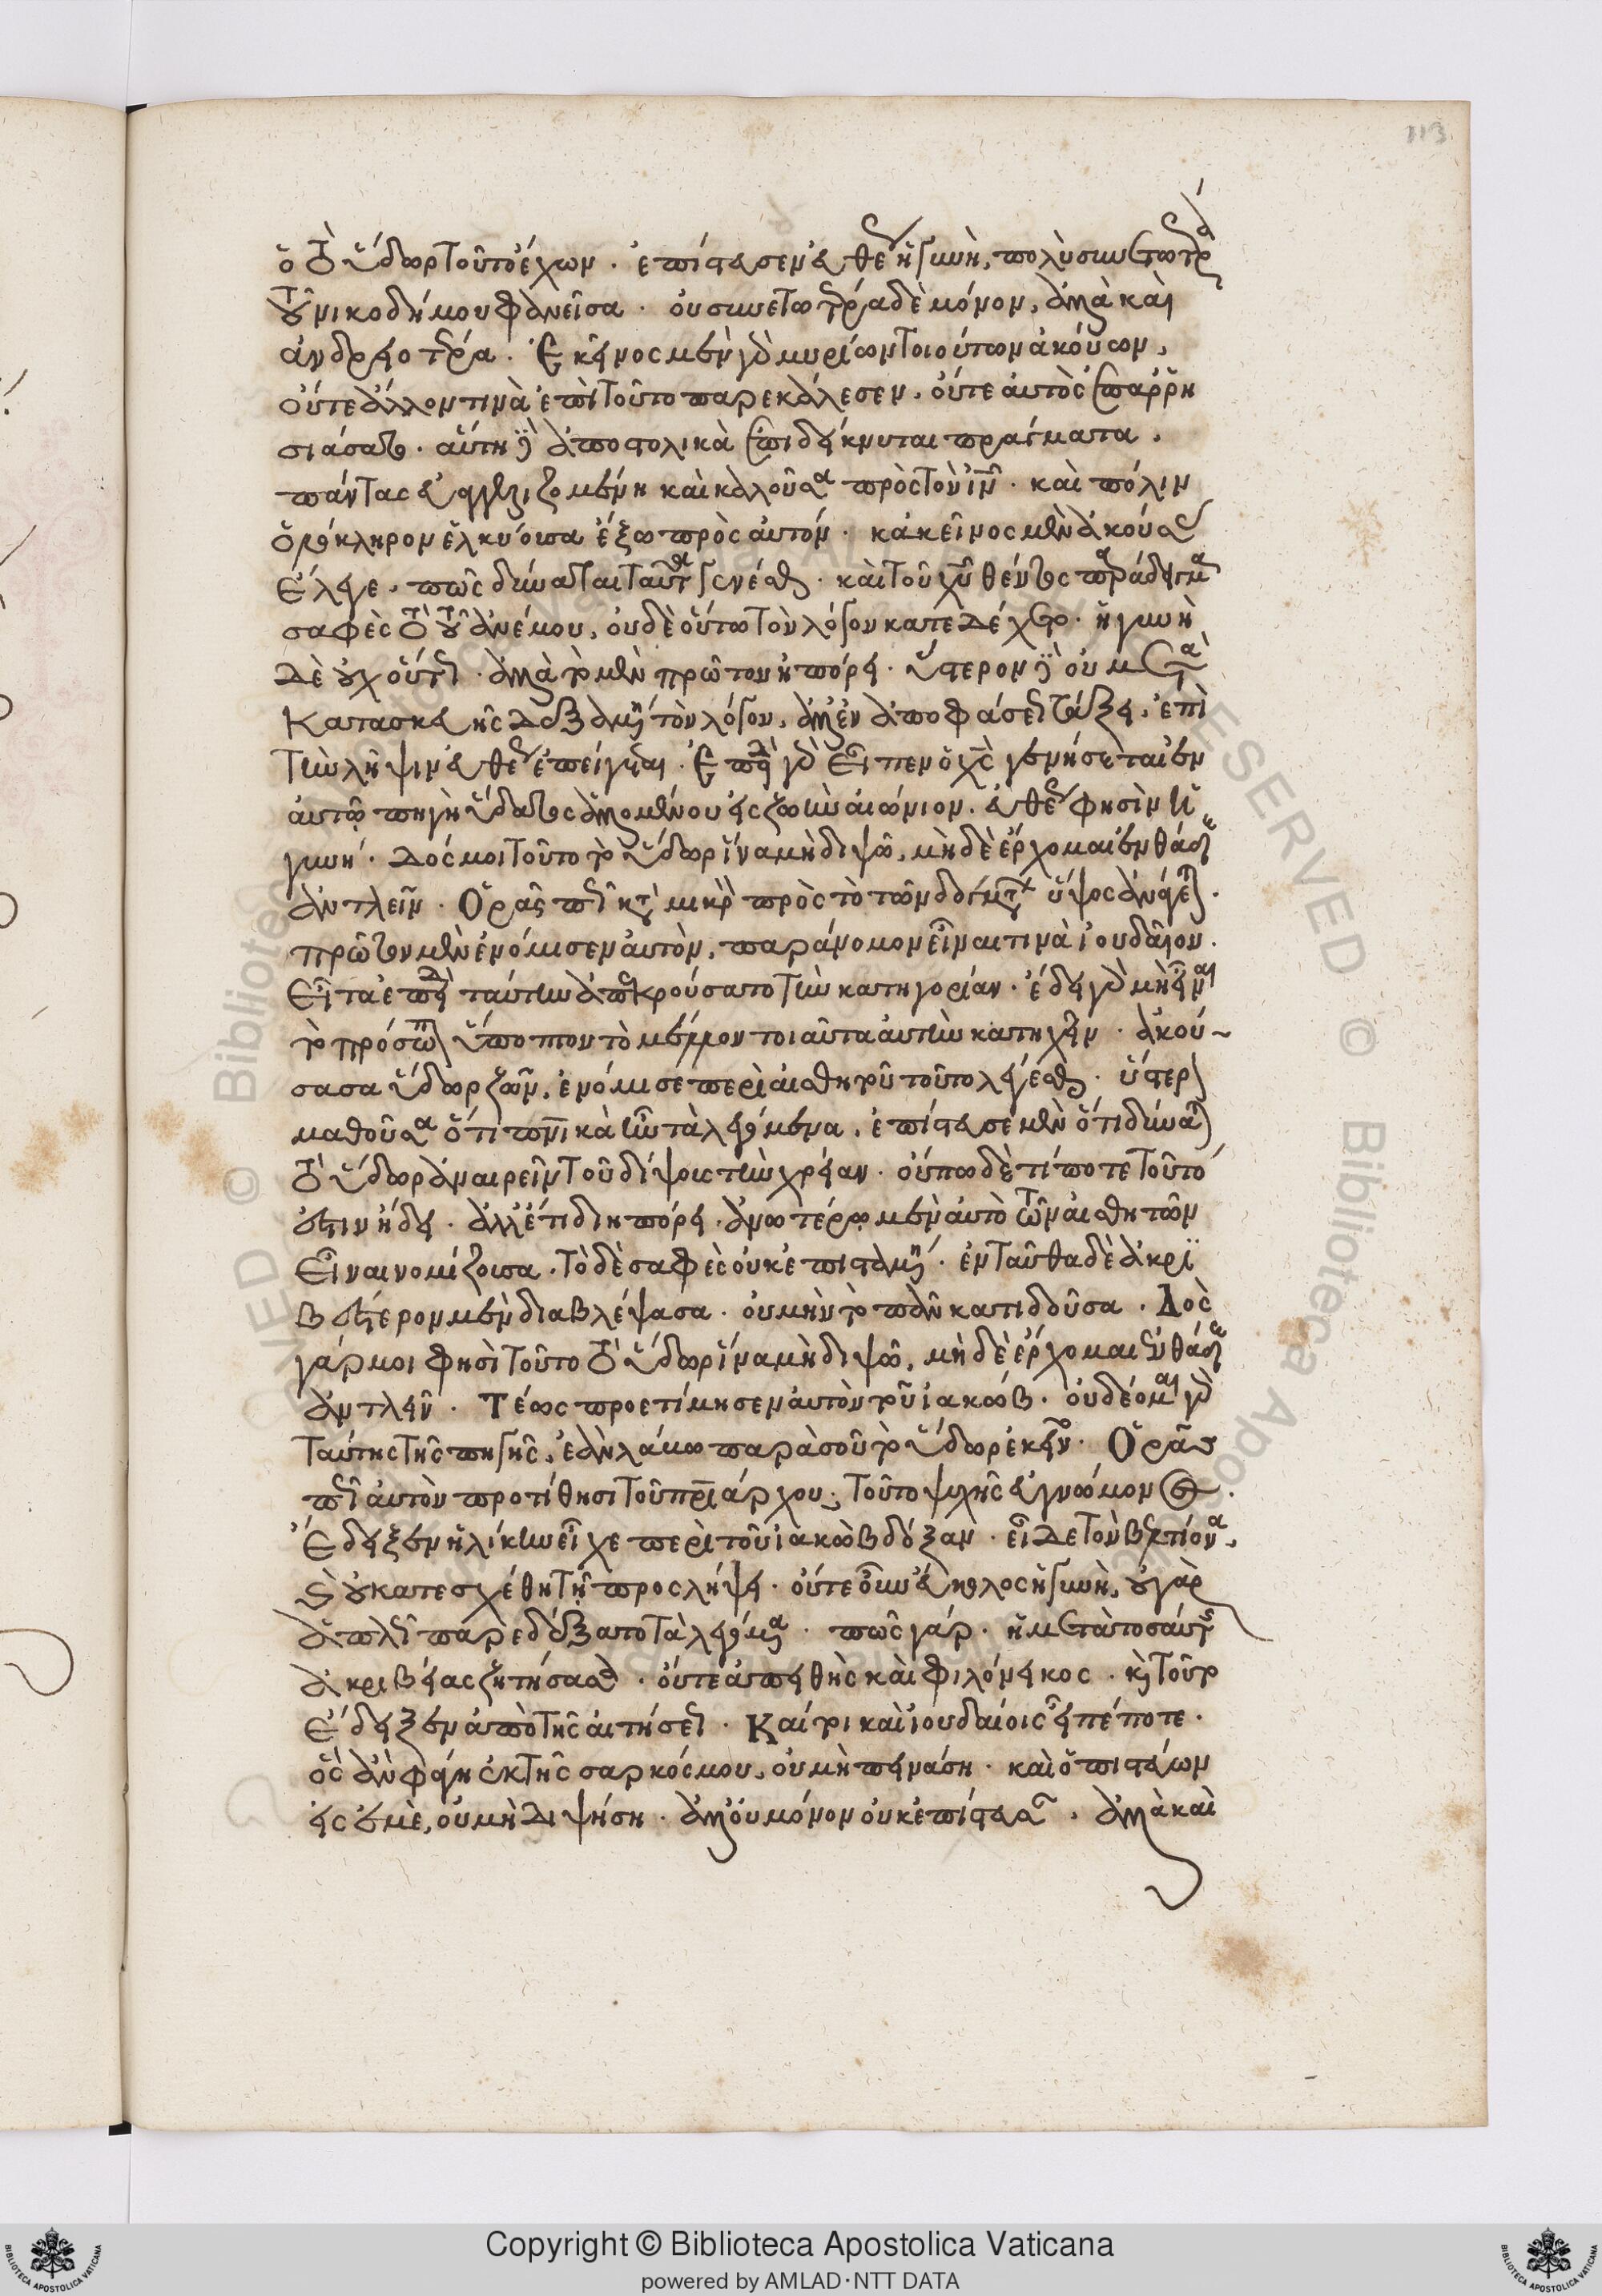 113
ὁ τὸ ὕδωρ τοῦτο ἔχων. ἐπίστευσεν εὐθέως ἡ γυνὴ, πολὺ συνετωτέρα
τοῦ νικοδήμου φανεῖσα. οὐ συνετωτέρα δὲ μόνον, ἀλλὰ καὶ
ἀνδρειοτέρα. ἐκεῖνος μὲν γὰρ μυρίων τοιούτων ἀκούων,
οὔτε ἄλλον τινὰ ἐπὶ τοῦτο παρεκάλεσεν, οὔτε αὐτὸς ἐπαρρη
σιάσατο. αὕτη δὲ ἀποστολικὰ ἐπιδείκνυται πράγματα,
πάντας εὐαγγελιζομένη καὶ καλοῦσα πρὸς τὸν ἰν. καὶ πόλιν
ὁλόκληρον ἑλκύουσα ἔξω πρὸς αὐτόν. κἀκεῖνος μὲν ἀκούσας
ἔλεγε, πῶς δύναται ταῦτα γενέσθαι. καὶ τοῦ χυ θέντος παράδειγμα
σαφὲς τὸ τοῦ ἀνέμου, οὐδὲ οὕτω τὸν λόγον κατεδέχετο. ἡ γυνὴ
δὲ οὐχ οὕτως. ἀλλὰ τὸ μὲν πρῶτον ἠπόρει. ὕστερον δὲ οὐ μετὰ
κατασκευῆς δεξαμένη τὸν λόγον, ἀλλ' ἐν ἀποφάσεως τάξει, ἐπὶ
τὴν λῆψιν εὐθέως ἐπείγεται. ἐπειδὴ γὰρ εἶπεν ὁ χς γενήσεται ἐν
αὐτῷ πηγὴ ὕδατος ἁλλομένου εἰς ζωὴν αἰώνιον, εὐθέως φησὶν ἡ
γυνή. δός μοι τοῦτο τὸ ὕδωρ ἵνα μὴ διψῶ, μὴ δὲ ἔρχομαι ἐνθάδε
ἀντλεῖν. Ὁρᾷς πῶς κατὰ μικρὸν πρὸς τὸ τῶν δογμάτων ὕψος ἀνάγεται.
πρῶτον μὲν ἐνόμισεν αὐτὸν, παράνομον εἶναι τινὰ ἰουδαῖον.
εἶτα ἐπειδὴ ταύτην ἀπεκρούσατο τὴν κατηγορίαν. ἔδει γὰρ μὴ εἶναι
τὸ πρόσωπον ὕποπτον τὸ μέλλον τοιαῦτα αὐτὴν κατηχεῖν. ἀκού-
σασα ὕδωρ ζῶν, ἐνόμισε περὶ αἰσθητοῦ τοῦτο λέγεσθαι. ὕστερον
μαθοῦσα ὅτι πνικὰ ἦν τὰ λεγόμενα, ἐπίστευσε μὲν ὅτι δύναται
τὸ ὕδωρ ἀναιρεῖν τοῦ δίψους τὴν χρείαν. οὔπω δὲ τί ποτε τοῦτό
ἐστιν ᾔδει. ἀλλ' ἔτι διηπόρει, ἀνωτέρω μὲν αὐτὸ τῶν αἰσθητῶν
εἶναι νομίζουσα. τὸ δὲ σαφὲς οὐκ ἐπισταμένη. ἐνταῦθα δὲ ἀκρι
βέστερον μὲν διαβλέψασα. οὐ μὴν τὸ πᾶν κατιδοῦσα. Δὸς
γάρ μοι φησὶ τοῦτο τὸ ὕδωρ ἵνα μὴ διψῶ, μὴ δὲ ἔρχομαι ἐνθάδε
ἀντλεῖν. Τέως προετίμησεν αὐτὸν τοῦ ἰακώβ. οὐ δέομαι γὰρ
ταύτης τῆς πηγῆς, ἐὰν λάβω παρὰ σοῦ τὸ ὕδωρ ἐκεῖνο. Ὁρᾷς
πῶς αὐτὸν προτίθησι τοῦ πριάρχου. τοῦτο ψυχῆς εὐγνώμονος.
ἔδειξεν ἡλίκην εἶχε περὶ τοῦ ἰακὼβ δόξαν. εἶδε τὸν βελτίονα,
οὐ κατεσχέθη τῇ προσλήψει. οὔτε οὖν εὔκολος ἡ γυνὴ, οὐ γὰρ
ἁπλῶς παρεδέξατο τὰ λεγόμενα. πῶς γάρ. ἡ μετὰ τοσαύτης
ἀκριβείας ζητήσασα. οὔτε ἀπειθὴς καὶ φιλόνεικος. καὶ τοῦτο
ἔδειξεν ἀπὸ τῆς αἰτήσεως. Καίτοι καὶ ἰουδαίοις εἶπέ ποτε.
ὃς ἂν φάγῃ ἐκ τῆς σαρκός μου, οὐ μὴ πεινάσῃ. καὶ ὁ πιστεύων
εἰς ἐμὲ, οὐ μὴ διψήσῃ. ἀλλ' οὐ μόνον οὐκ ἐπίστευσαν, ἀλλὰ καὶ
Copyright © Biblioteca Apostolica Vaticana
powered by AMLAD·NTT DATA